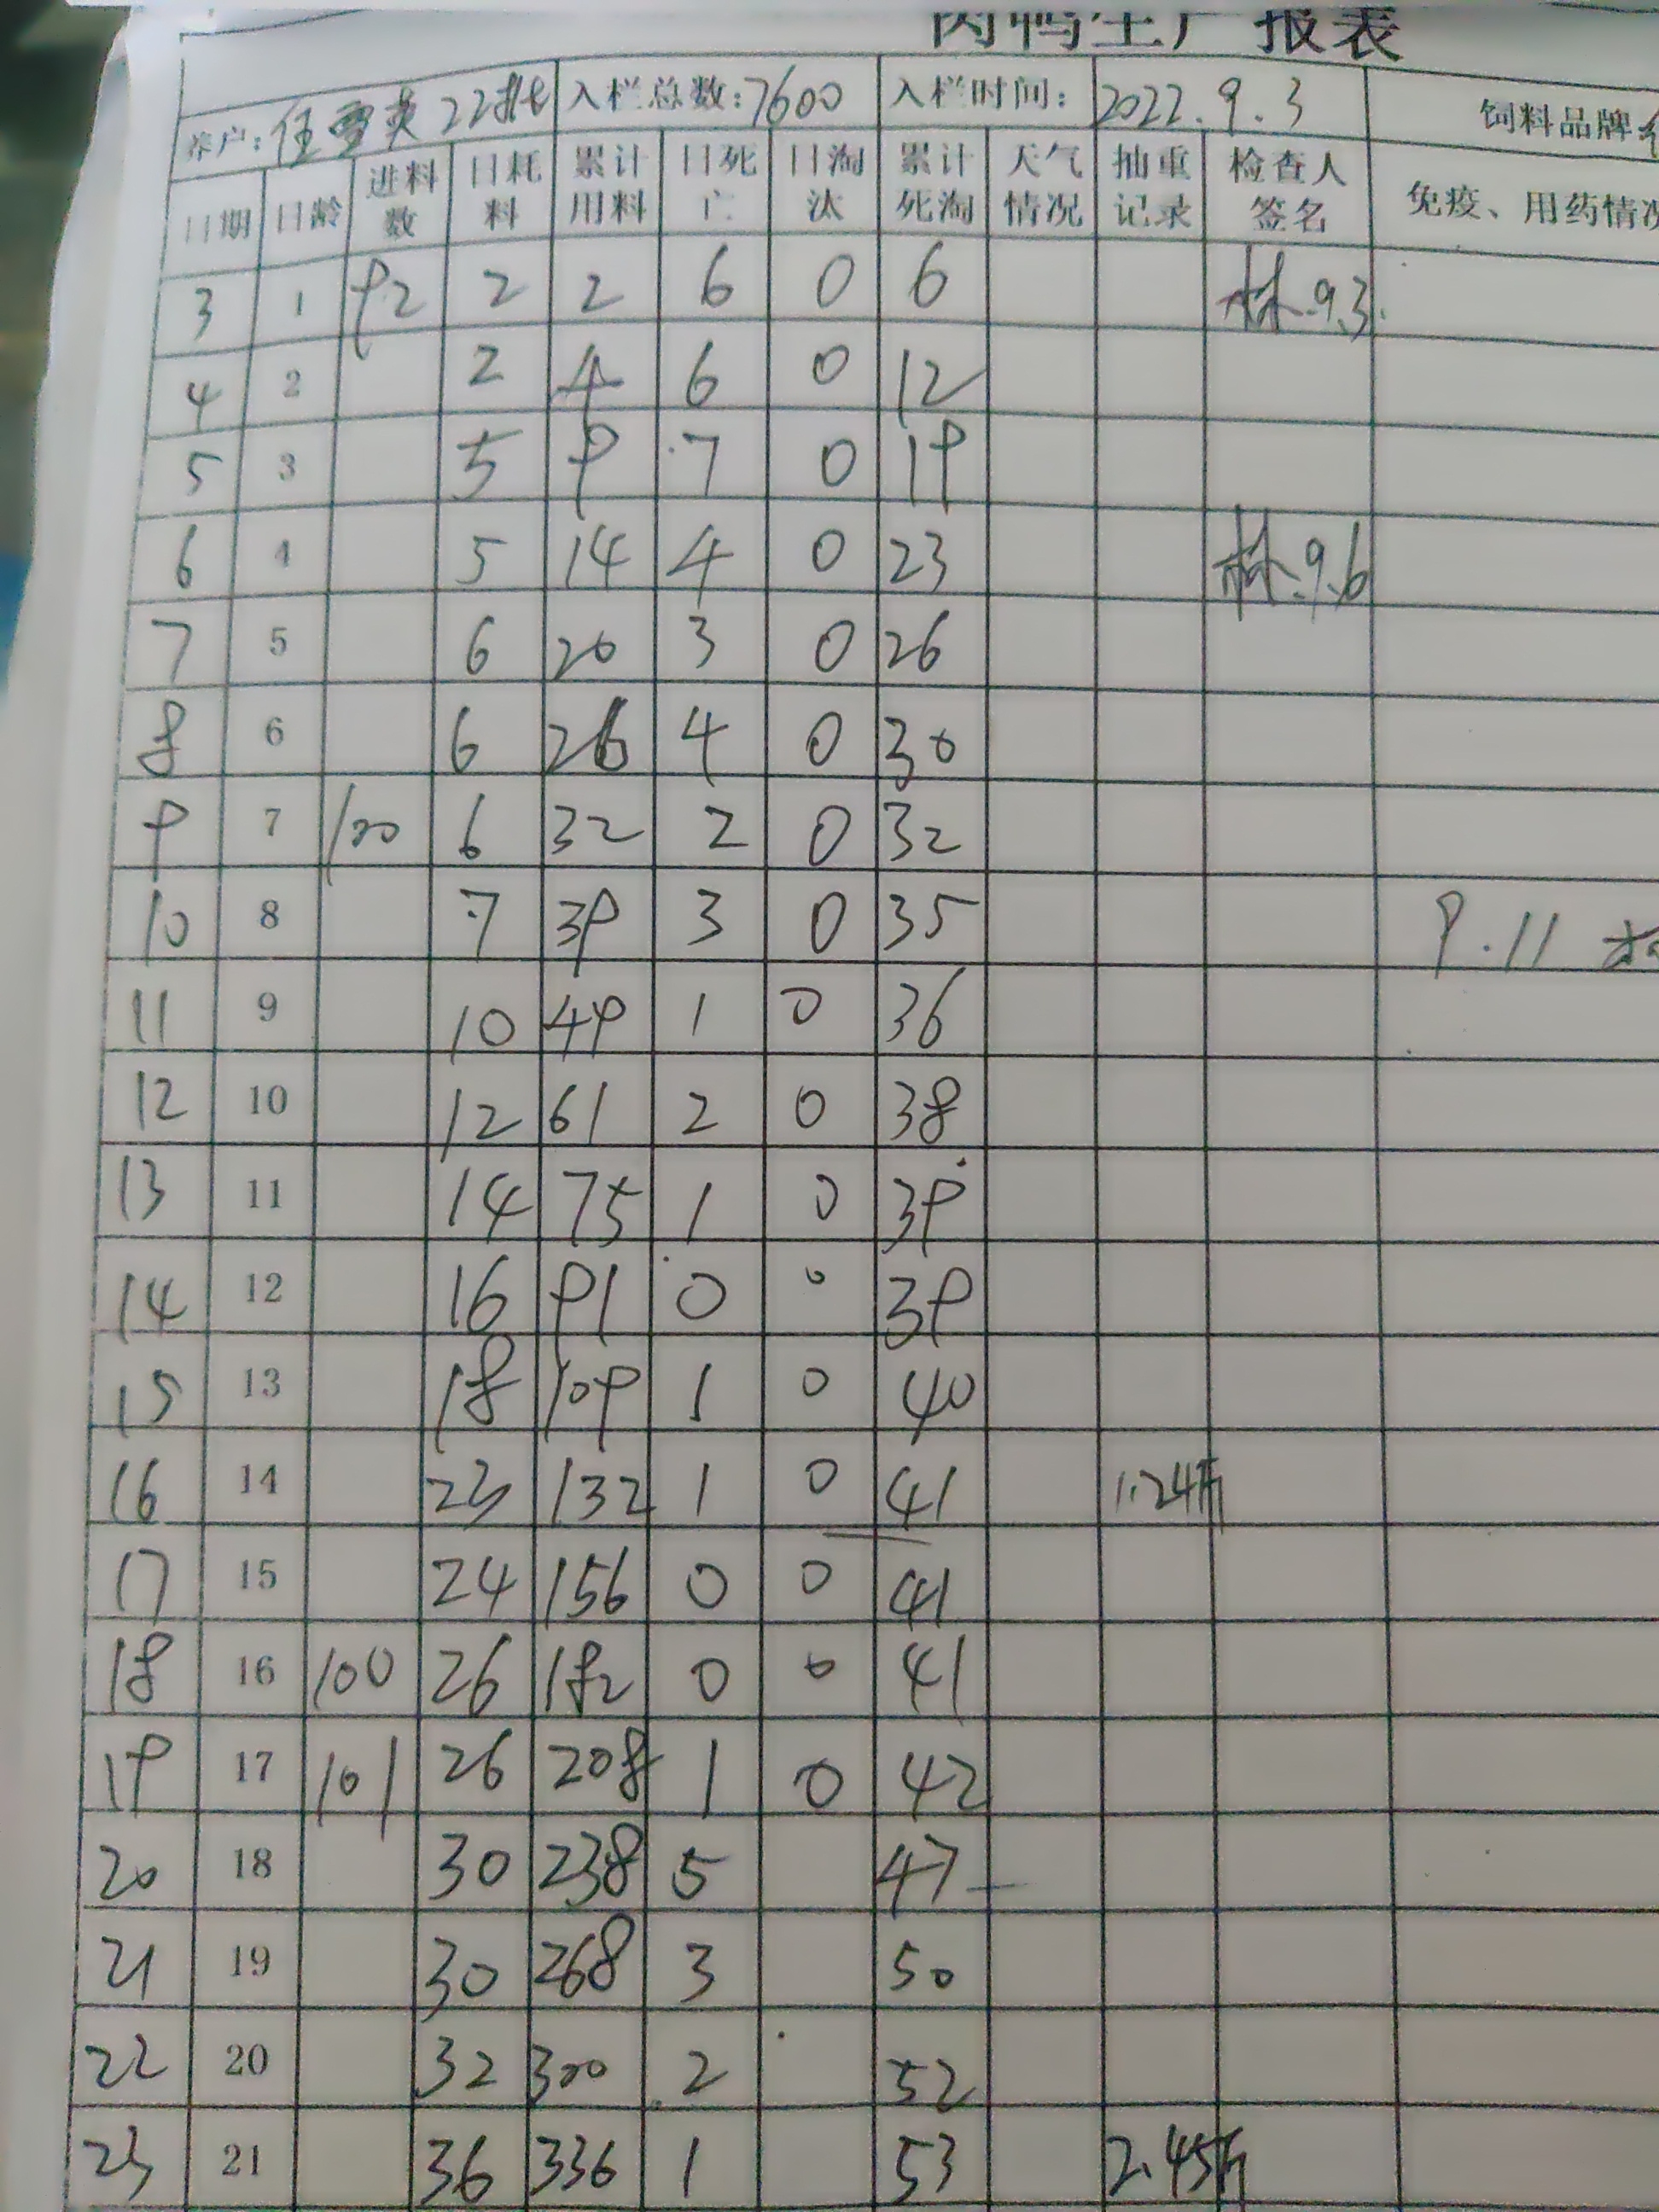 肉鸭生产报表
养户:任雪英 22批 入栏总数:7600 入栏时间: 2022.9.3 饲料品牌:
日期 日龄 进料数 日耗料 累计用料 日死亡 日淘汰 累计死淘 天气情况 抽重记录 检查人签名 免疫、用药情况
3 1 92 2 2 6 0 6 林.9.3.
4 2 2 4 6 0 12
5 3 5 9 7 0 19
6 4 5 14 4 0 23 林.9.6
7 5 6 20 3 0 26
8 6 6 26 4 0 30
9 7 100 6 32 2 0 32
10 8 7 39 3 0 35 9.11
11 9 10 49 1 0 36
12 10 12 61 2 0 38
13 11 14 75 1 0 39
14 12 16 91 0 0 39
15 13 18 109 1 0 40
16 14 23 132 1 0 41 1.24斤
17 15 24 156 0 0 41
18 16 100 26 182 0 0 41
19 17 101 26 208 1 0 42
20 18 30 238 5 47
21 19 30 268 3 50
22 20 32 300 2 52
23 21 36 336 1 53 2.45斤